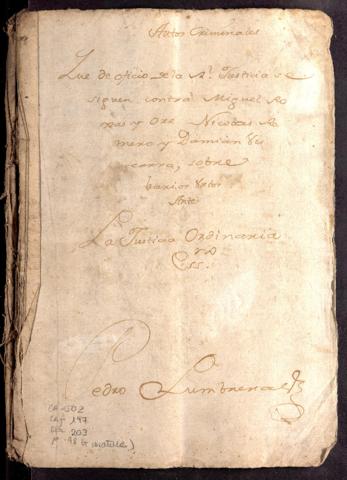 Autos Criminales
Que de oficio de la Rl. Justicia se
siguen contra Miguel Ro
mas y Ore Nicolas Ro
mero y Damian
cerra, sobre
barios
Ante
La Justicia Ordinaria
Ess.
Pedro Lumbreras
CA-502
Caj 197
203